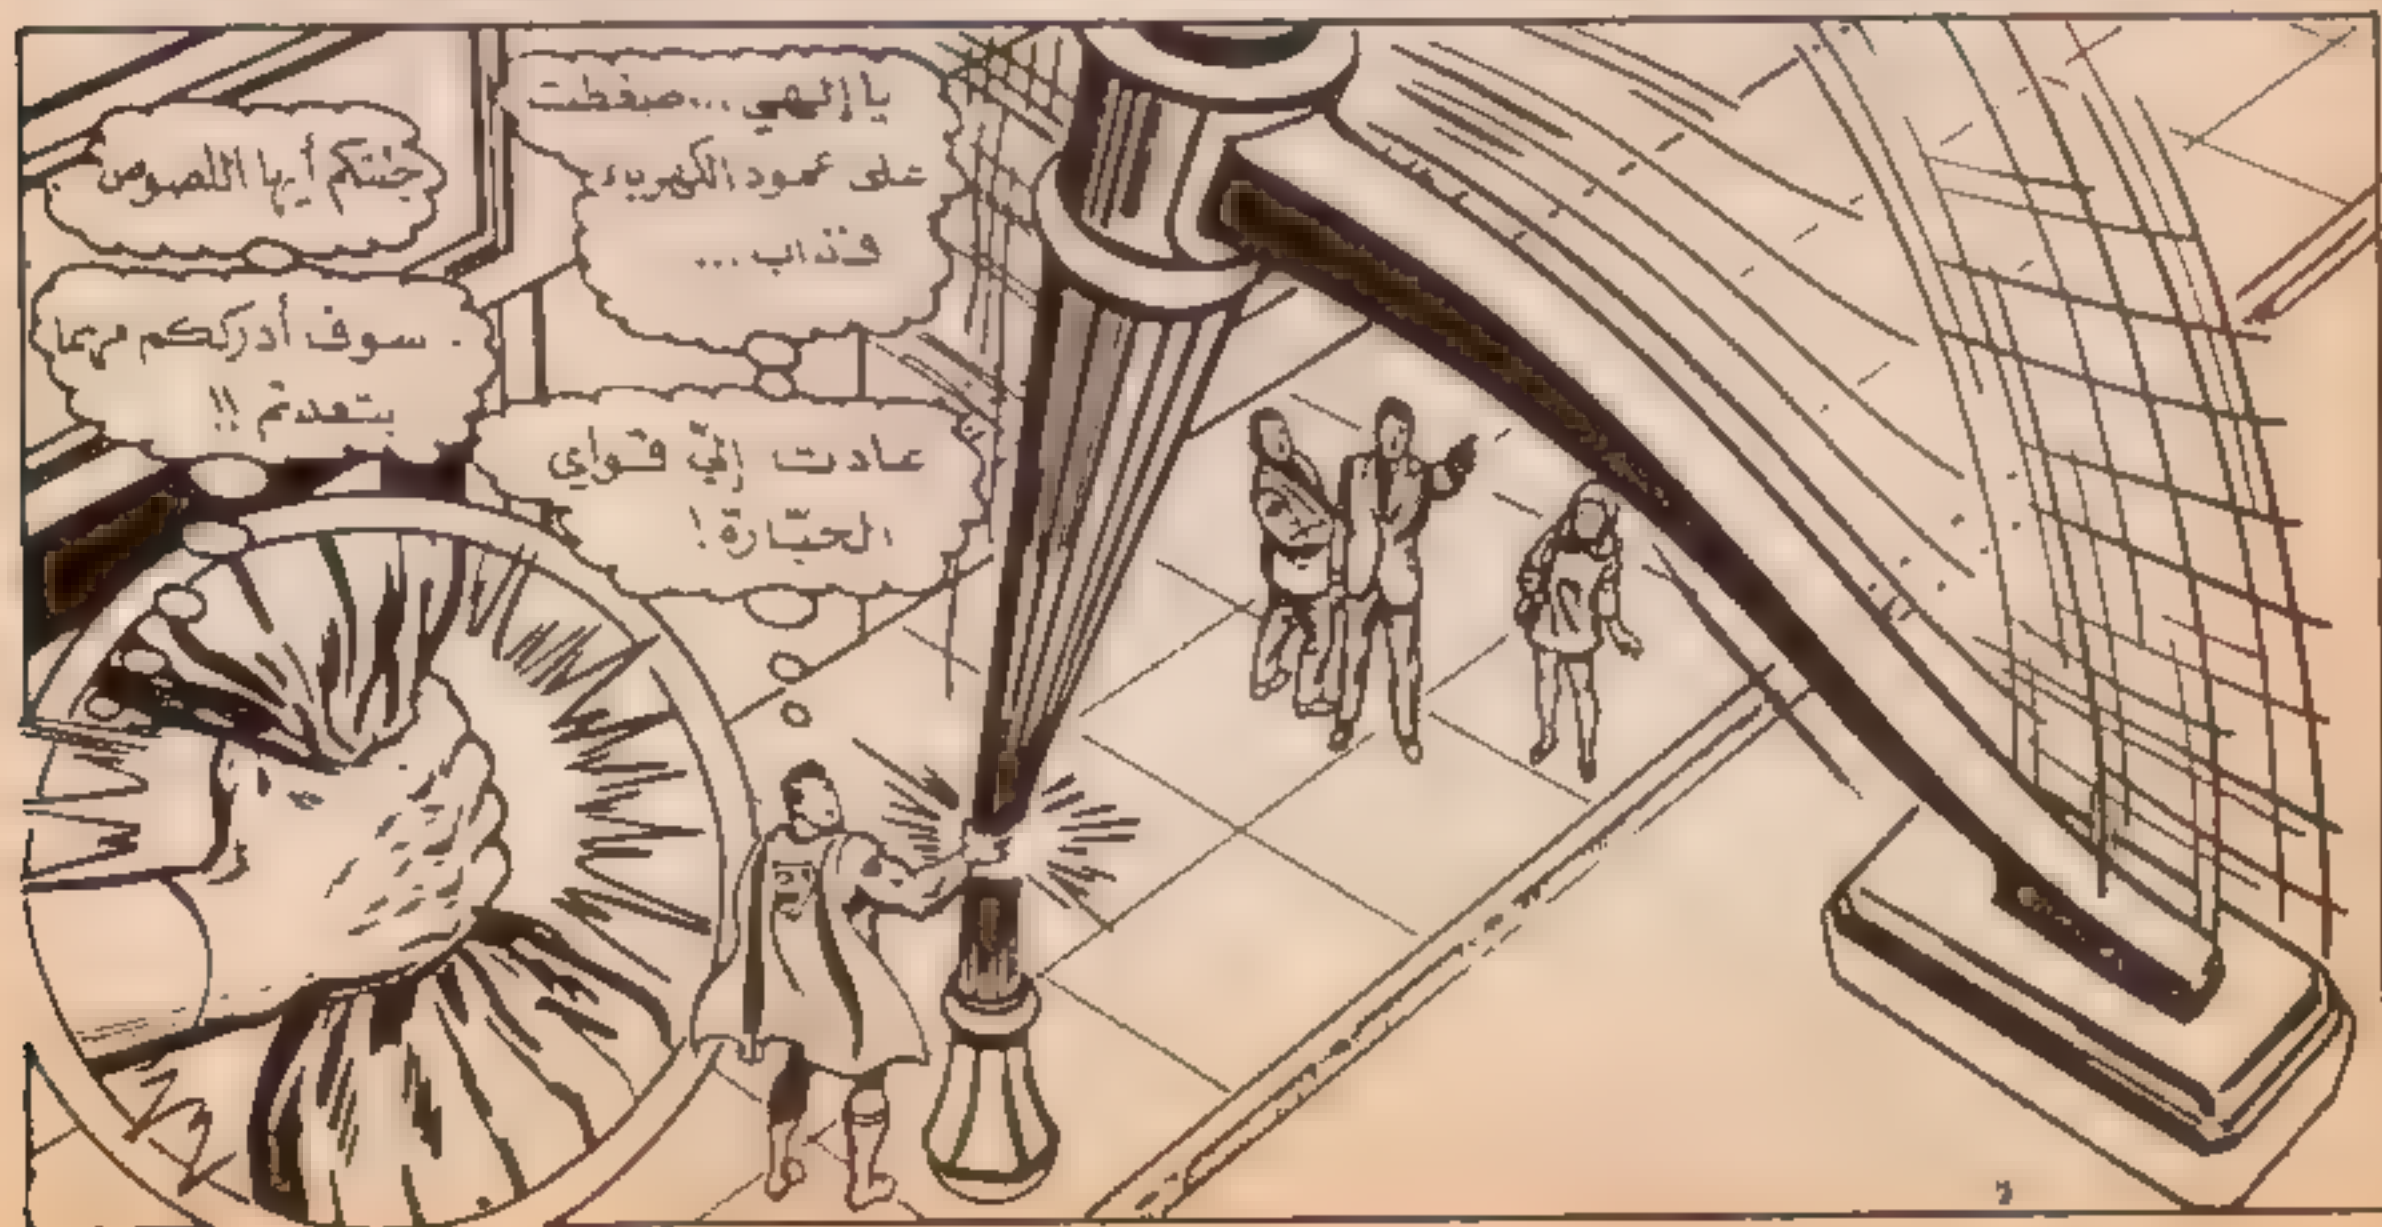 يا إلهي... ضغطت
على عمود الكهرباء
فذاب...
عادت إليّ قواي
الجبّارة!
جئتكم أيها اللصوص
سوف أدرككم مهما
بتعدتم !!